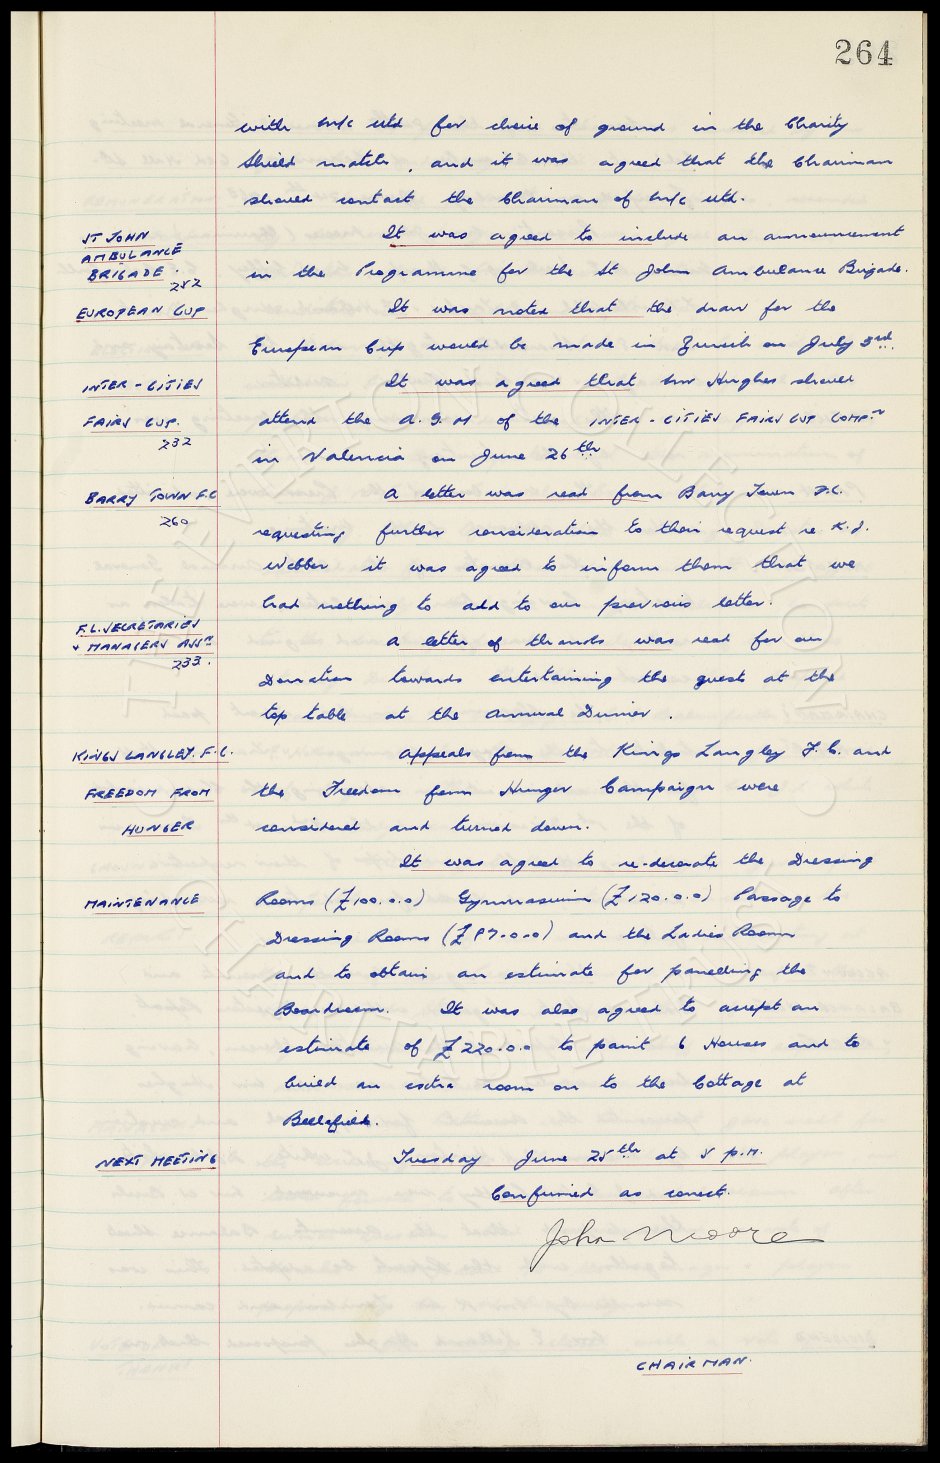 264
with M/c Utd for choice of ground in the Charity
Shield match, and it was agreed that the Chairman
should contact the Chairman of M/c Utd.
ST JOHN
AMBULANCE
BRIGADE.
252
It was agreed to include an announcement
in the Programme for the St John Ambulance Brigade.
EUROPEAN CUP
It was noted that the draw for the
European Cup would be made in Zurich on July 3rd.
INTER-CITIES
FAIRS CUP.
232
It was agreed that Mr Hughes should
attend the A.G.M of the INTER-CITIES FAIRS CUP COMPn
in Valencia on June 26th
BARRY TOWN F.C
260
A letter was read from Barry Town F.C.
requesting further consideration to their request re K.J.
Webber it was agreed to inform them that we
had nothing to add to our previous letter.
F.L. SECRETARIES
+ MANAGERS ASSn
233.
A letter of thanks was read for our
Donation towards entertaining the guests at the
top table at the Annual Dinner.
KINGS LANGLEY. F.C.
FREEDOM FROM
HUNGER
Appeals from the Kings Langley F.C. and
the Freedom from Hunger Campaign were
considered and turned down.
MAINTENANCE
It was agreed to re-decorate the Dressing
Rooms (£100.0.0) Gymnasium (£120.0.0) Passage to
Dressing Rooms (£87.0.0) and the Ladies Room
and to obtain an estimate for panelling the
Boardroom. It was also agreed to accept an
estimate of £220.0.0 to paint 6 Houses and to
build an extra room on to the Cottage at
Bellefield.
NEXT MEETING
Tuesday June 25th at 5 p.m.
Confirmed as correct.
John Moore
CHAIRMAN.